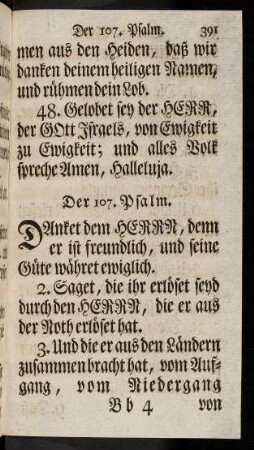 Der 107. Psalm. 391
men aus den Heiden, daß wir
danken deinem heiligen Namen,
und rühmen dein Lob.
48. Gelobet sey der HERR,
der GOtt Israels, von Ewigkeit
zu Ewigkeit; und alles Volk
spreche Amen, Halleluja.
Der 107. Psalm.
DAnket dem HERRN, denn
er ist freundlich, und seine
Güte währet ewiglich.
2. Saget, die ihr erlöset seyd
durch den HERRN, die er aus
der Noth erlöset hat.
3. Und die er aus den Ländern
zusammen bracht hat, vom Auf-
gang, vom Niedergang
B b 4 von